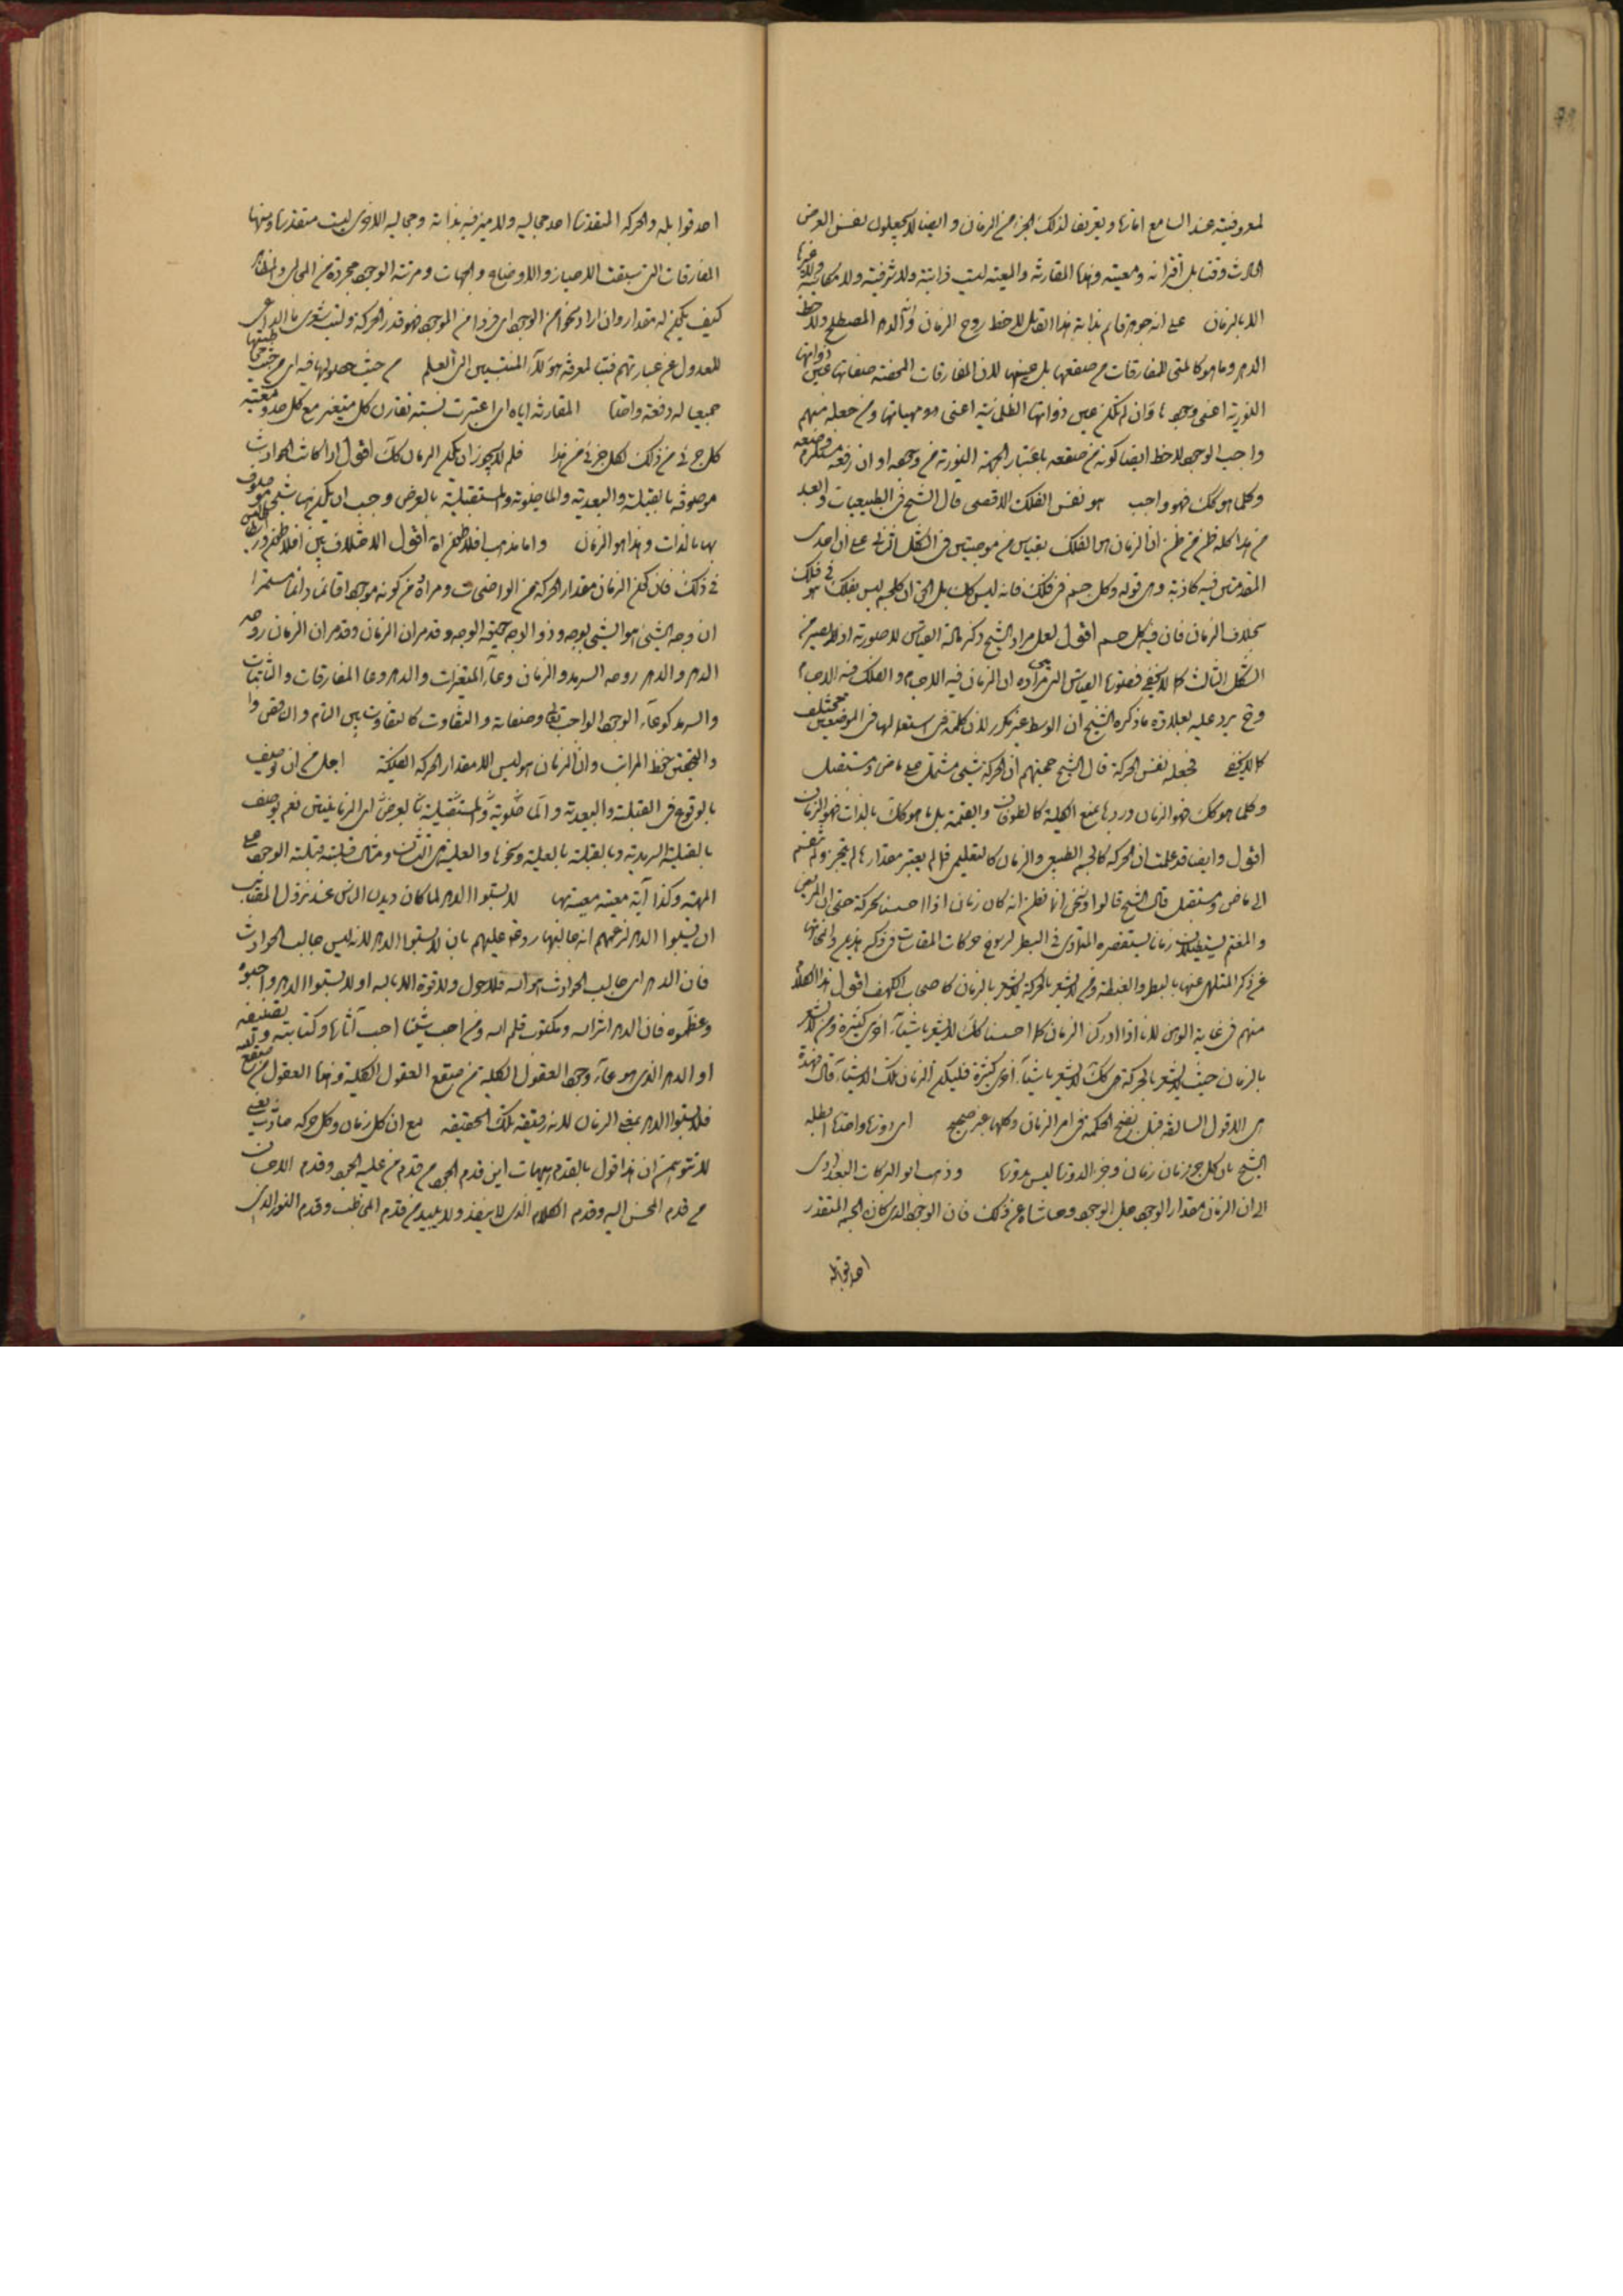 لمعروفيته عند السامع امارة وتعريفا لذلك الجزء من الزمان وايضا لا يجعلون نفس العرض
الحادث وقتا بل اقترانه ومعيته وهذه المقارنة والمعية ليست ذاتية ولا شرفية ولا مكانية ولا غيرها
الا بالزمان على انه جوهر قائم بذاته هذا القائل لاحظ روح الزمان وانه الدهر المصطلح ولاحظ
الدهر وما هو كالمتى للمفارقات من صقعها بل عينها لان المفارقات المحضة صفاتها عين ذواتها
النورية اعنى وجودها وان لم تكن عين ذواتها الظلمانية اعنى ماهياتها ومن جعله منهم
واجب الوجود لاحظ ايضا كونه من صقعه باعتبار الجهة النورية من وجهه او ان رفعه مستلزم وضعه
وكلما هو كك فهو واجب هو نفس الفلك الاقصى قال الشيخ فى الطبيعيات وابعد
من هذا كله ظن من ظن ان الزمان هو الفلك بقياس من موجبتين فى الشكل الثانى على ان احدى
المقدمتين فيه كاذبة وهى قوله وكل جسم فى فلك فانه ليس كك بل الحق ان كل جسم ليس بفلك هو فى فلك
بخلاف الزمان فان فيه كل جسم اقول لعل مراد الشيخ ذكر مادة القياس لا صورته اذ لا يصير من
الشكل الثالث كما لا يخفى فصورة القياس التى هى مراده ان الزمان فيه الاجسام والفلك فيه الاجسام
وح يرد عليه بعلاوة ما ذكره الشيخ ان الوسط غير مكرر لان كلمة فى استعمالها فى الموضعين مختلف
كما لا يخفى فجعله نفس الحركة قال الشيخ حجتهم ان الحركة شىء مشتمل على ماض ومستقبل
وكلما هو كك فهو الزمان ورد بمنع الكلية كالطوفان والقيمة بل ما هو كك بالذات فهو الزمان
اقول وايضا قد علمت ان الحركة كالجسم الطبيعى والزمان كالتعليمى فما لم يعتبر مقدارها لم يتجز ولم تنقسم
الى ماض ومستقبل قال الشيخ قالوا ونحن انما نظن انه كان زمان اذا احسسنا بحركة حتى ان المريض
والمغتم يستطيلان زمانا يستقصره المتمادى فى البطر لرسوخ حركات المقاسات فى ذكر هذين وانمحائها
عن ذكر المتلهى عنها بالبطر والغبطة ومن لا يشعر بالحركة لا يشعر بالزمان كاصحاب الكهف اقول هذا الكلام
منهم فى غاية الوهن لانا اذا ادركنا الزمان كما احسسنا كك لا يشعر باشياء اخرى كثيرة ومن لا يشعر
بالزمان حيث لا يشعر بالحركة هى كك لا يشعر باشياء اخرى كثيرة فليكن الزمان تلك الاشياء قال فهذه
هى الاقوال السالفة قبل نضج الحكمة فى امر الزمان وكلها غير صحيح اى دورة واحدة ابطله
الشيخ بان كل جزء زمان زمان وجزء الدورة ليس بدورة وذهب ابو البركات البغدادى
الى ان الزمان مقدار الوجود جل الوجود وحاشاه عن ذلك فان الوجود الذى كان الجسم المتقدر
احد قوابله
احد قوابله والحركة المتقدرة احد مجاليه ولا ميز فيه بذاته ومجاليه الاخرى ليست متقدرة ومنها
المفارقات التى سبقت الاحياز والاوضاع والجهات ومرتبة الوجود مجردة من المجالى والمظاهر
كيف يكون له مقدار وان اراد نحوا من الوجود اى فردا من الموجود فهو قدر الحركة وليت شعرى ما الداعى
للعدول عن عبارتهم فتبا لمعرفة هؤلاء المنتسبين الى العلم من حيث حصولها فيه اى من حيث
جميعا له دفعة واحدة المقارنة اياه اى اعتبرت نسبته تقارن كل متغير مع كل حد ومعية
كل جزء من ذلك لكل جزء من هذا فلم لا يجوز ان يكون الزمان كك اقول اذا كانت الحوادث
موصوفة بالقبلية والبعدية والماضوية والمستقبلية بالعرض وجب ان يكون هنا شىء موصوف
بها بالذات وهذا هو الزمان واما مذهب افلاطون اه اقول الاختلاف بين افلاطون وارسطاطاليس
فى ذلك فان كون الزمان مقدار الحركة من الواضحات ومراده من كونه موجودا قائما بذاته مستمرا
ان وجه الشىء هو الشىء بوجه وذو الوجه حقيقة الوجه وقد مر ان الزمان وقد مر ان الزمان روحه
الدهر والدهر روحه السرمد والزمان وعاء المتغيرات والدهر وعاء المفارقات والثابتات
والسرمد كوعاء الوجود الواجب تعالى وصفاته والتفاوت كالتفاوت بين التام والناقص
والتحقيق حفظ المراتب وان الزمان هو ليس الا مقدار الحركة الفلكية اجل من ان يوصف
بالوقوع فى القبلية والبعدية والماضوية والمستقبلية بالعرض اى الزمانيتين نعم يوصف
بالقبلية السرمدية وبالقبلية بالعلية ونحوها
المهية وكذا اية معية معيتها لا تسبوا الدهر لما كان ديدن الناس عند نزول المصائب
ان يسبوا الدهر لزعمهم انه جالبها ردوه عليهم بان لا تسبوا الدهر لانه ليس جالب الحوادث
فان الدهر اى جالب الحوادث هو الله فلا حول ولا قوة الا بالله او لا تسبوا الدهر واحبوه
وعظموه فان الدهر اثر الله ومكتوب قلم الله ومن احب شيئا احب آثاره وكتابته وتصنيفه
او الدهر الذى هو وعاء وجود العقول الكلية من صقع العقول الكلية وهذه العقول من صقع الله
فلا تسبوا الدهر بمعنى الزمان لانه رقيقة تلك الحقيقة مع ان كل زمان وكل حركة حادث يعنى
لا تتوهمن ان هذا قول بالقدم هيهات اين قدم الجود من قدم من عليه الجود وقدم الاحسان
من قدم المحسن اليه وقدم الكلام الذى لا ينفد ولا يبيد من قدم المخاطب وقدم النور الذى